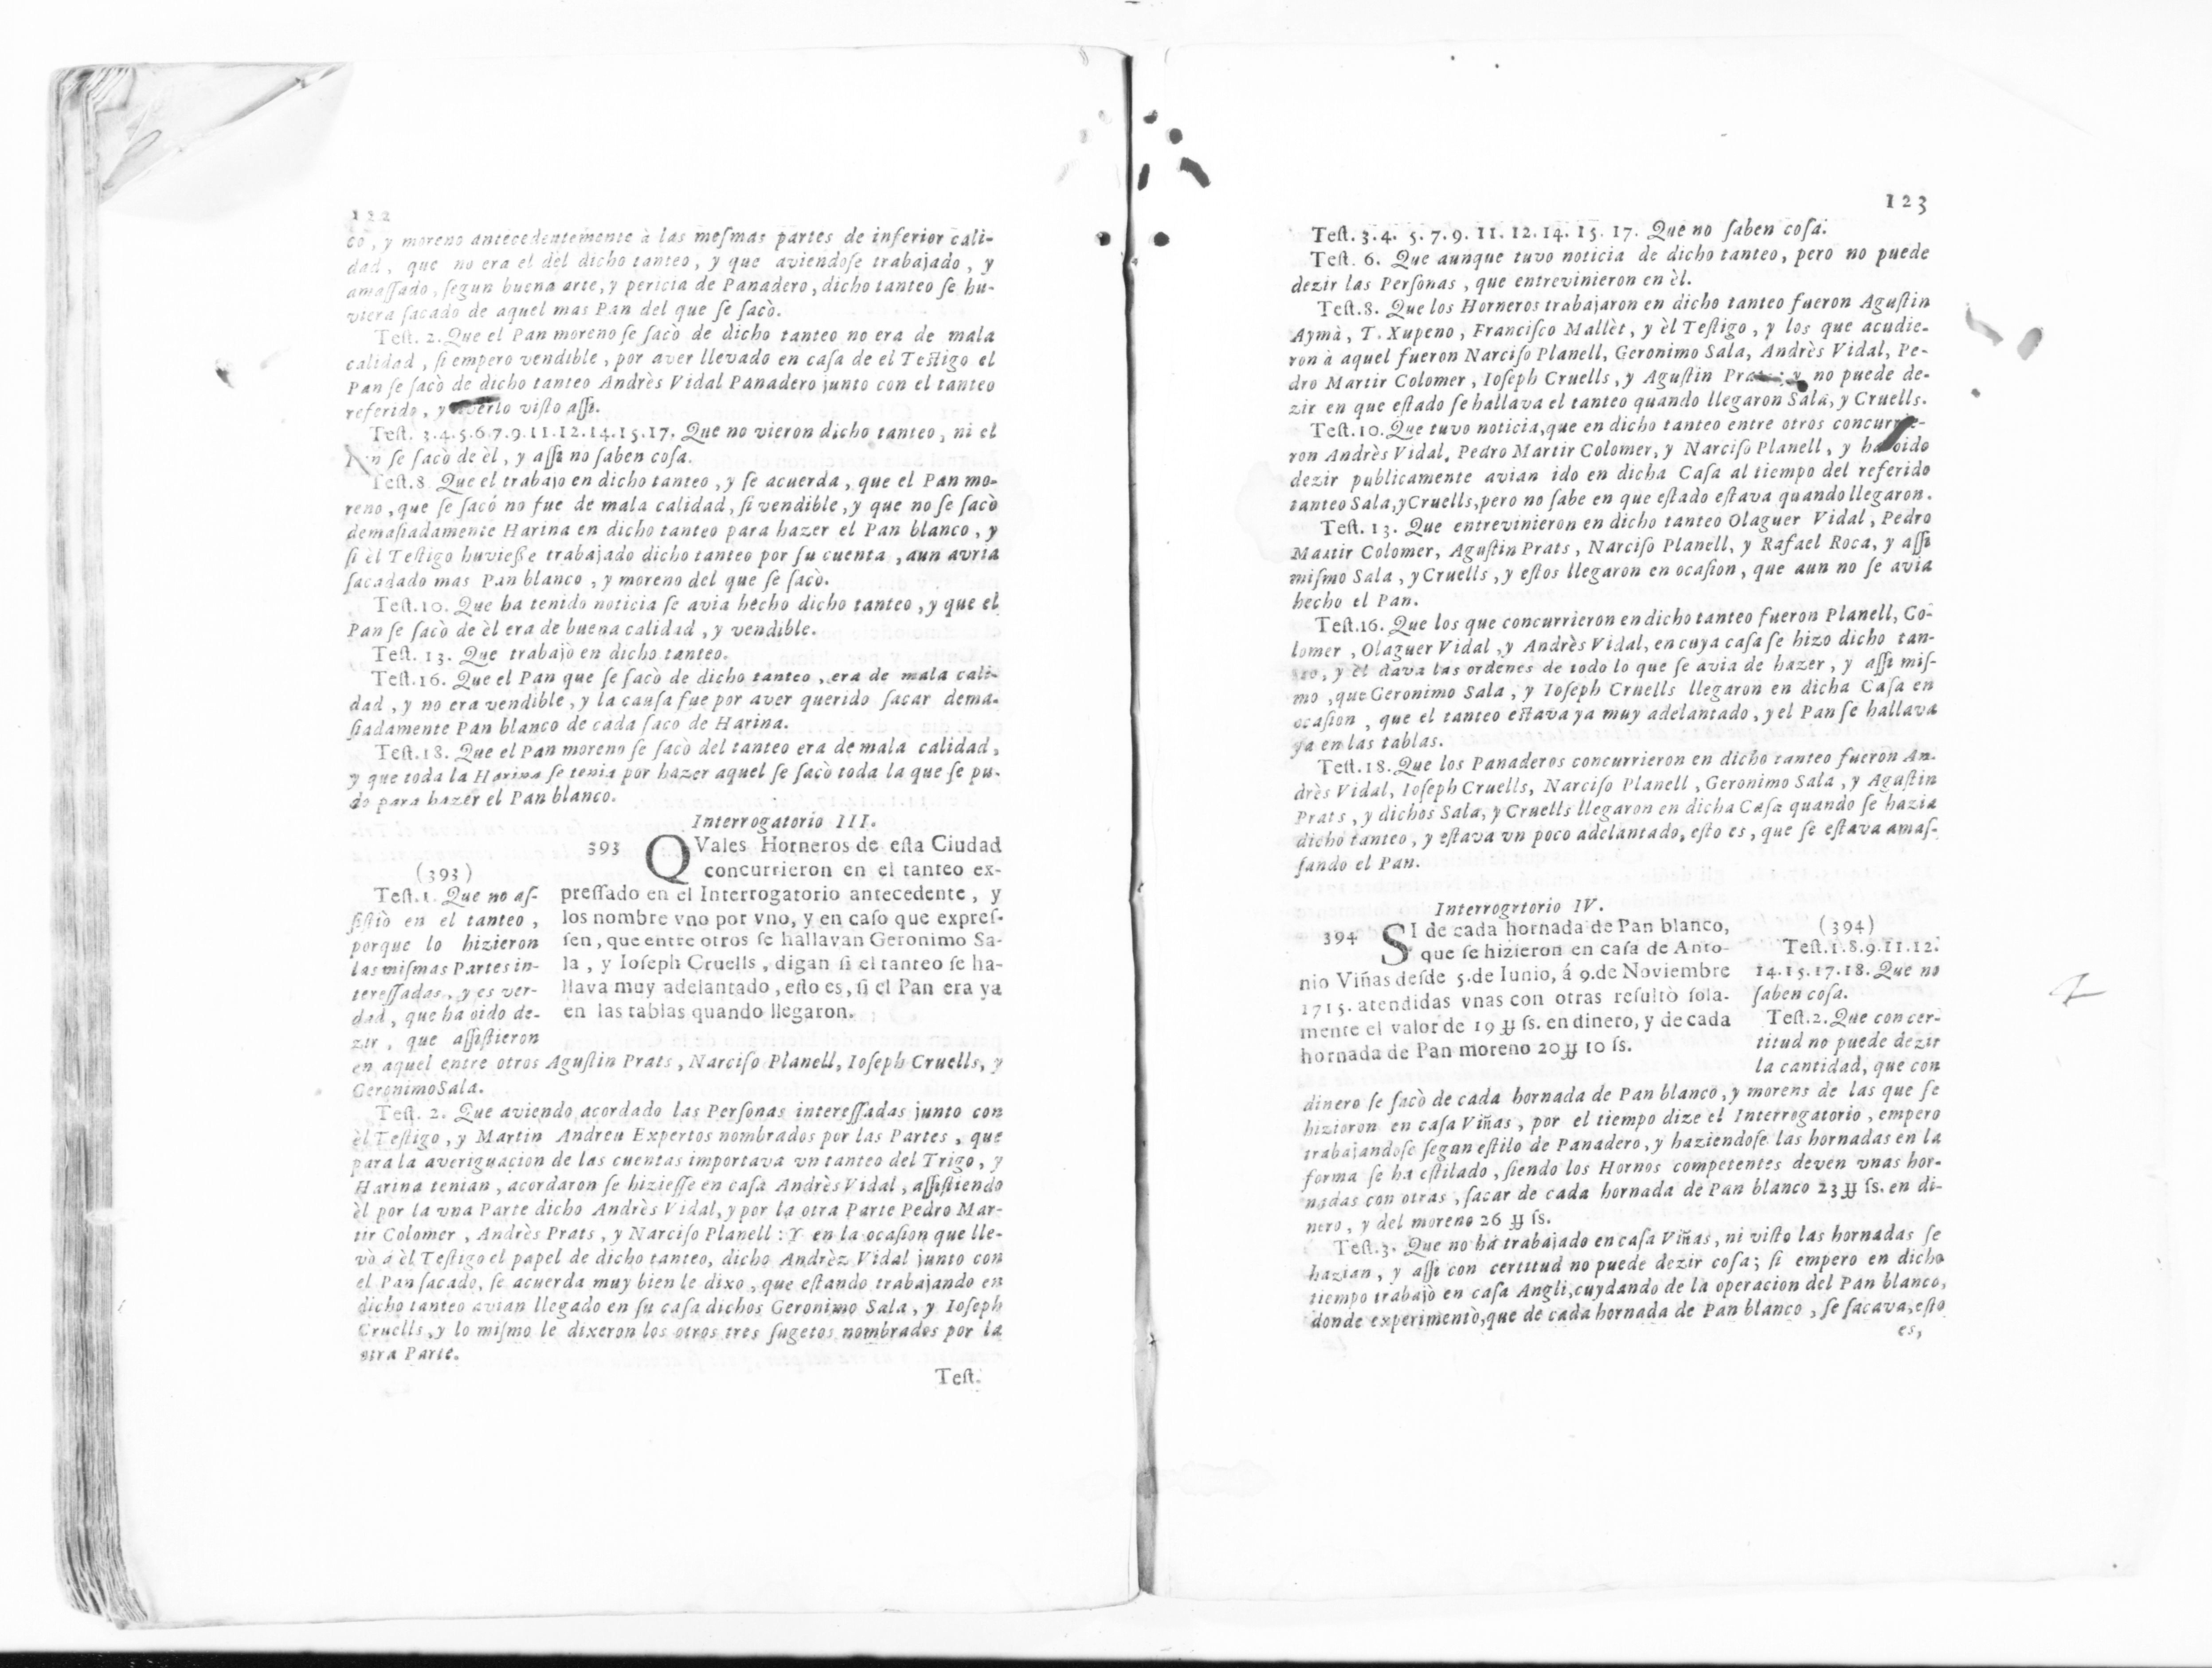 122
co, y moreno antecedentemente à las meſmas partes de inferior cali-
dad, que no era el del dicho tanteo, y que aviendoſe trabajado, y
amaſſado, ſegun buena arte, y pericia de Panadero, dicho tanteo ſe hu-
viera ſacado de aquel mas Pan del que ſe ſacò.
Teſt. 2. Que el Pan moreno ſe ſacò de dicho tanteo no era de mala
calidad, ſi empero vendible, por aver llevado en caſa de el Teſtigo el
Pan ſe ſacò de dicho tanteo Andrès Vidal Panadero junto con el tanteo
referido, y viſto aſſi.
Teſt. 3.4.5.6.7.9.11.12.14.15.17. Que no vieron dicho tanteo, ni el
ſe ſacò de èl, y aſſi no ſaben coſa.
Teſt.8. Que el trabajo en dicho tanteo, y ſe acuerda, que el Pan mo-
reno, que ſe ſacó no fue de mala calidad, ſi vendible, y que no ſe ſacò
demaſiadamente Harina en dicho tanteo para hazer el Pan blanco, y
ſi èl Teſtigo huvieſſe trabajado dicho tanteo por ſu cuenta, aun avria
ſacadado mas Pan blanco, y moreno del que ſe ſacò.
Teſt.10. Que ha tenido noticia ſe avia hecho dicho tanteo, y que el
Pan ſe ſacò de èl era de buena calidad, y vendible.
Teſt. 13. Que trabajò en dicho tanteo.
Teſt.16. Que el Pan que ſe ſacò de dicho tanteo, era de mala cali-
dad, y no era vendible, y la cauſa fue por aver querido ſacar dema-
ſiadamente Pan blanco de cada ſaco de Harina.
Teſt.18. Que el Pan moreno ſe ſacò del tanteo era de mala calidad,
y que toda la Harina ſe tenia por hazer aquel ſe ſacò toda la que ſe pu-
do para hazer el Pan blanco.
Interrogatorio III.
393 QVales Horneros de eſta Ciudad
concurrieron en el tanteo ex-
preſſado en el Interrogatorio antecedente, y
los nombre vno por vno, y en caſo que expreſ-
ſen, que entre otros ſe hallavan Geronimo Sa-
la, y Ioſeph Cruells, digan ſi el tanteo ſe ha-
llava muy adelantado, eſto es, ſi el Pan era ya
en las tablas quando llegaron.
(393)
Teſt.1. Que no aſ-
ſiſtiò en el tanteo,
porque lo hizieron
las miſmas Partes in-
tereſſadas, y es ver-
dad, que ha oido de-
zir, que aſſiſtieron
en aquel entre otros Aguſtin Prats, Narciſo Planell, Ioſeph Cruells, y
Geronimo Sala.
Teſt. 2. Que aviendo acordado las Perſonas intereſſadas junto con
èl Teſtigo, y Martin Andreu Expertos nombrados por las Partes, que
para la averiguacion de las cuentas importava vn tanteo del Trigo, y
Harina tenian, acordaron ſe hizieſſe en caſa Andrès Vidal, aſſiſtiendo
èl por la vna Parte dicho Andrès Vidal, y por la otra Parte Pedro Mar-
tir Colomer, Andrès Prats, y Narciſo Planell: Y en la ocaſion que lle-
vò á èl Teſtigo el papel de dicho tanteo, dicho Andrèz Vidal junto con
el Pan ſacado, ſe acuerda muy bien le dixo, que eſtando trabajando en
dicho tanteo avian llegado en ſu caſa dichos Geronimo Sala, y Ioſeph
Cruells, y lo miſmo le dixeron los otros tres ſugetos nombrados por la
otra Parte.
Teſt.
123
Teſt. 3.4. 5.7.9. 11. 12. 14. 15. 17. Que no ſaben coſa.
Teſt. 6. Que aunque tuvo noticia de dicho tanteo, pero no puede
dezir las Perſonas, que entrevinieron en èl.
Teſt.8. Que los Horneros trabajaron en dicho tanteo fueron Aguſtin
Aymà, T. Xupeno, Franciſco Mallèt, y èl Teſtigo, y los que acudie-
ron à aquel fueron Narciſo Planell, Geronimo Sala, Andrès Vidal, Pe-
dro Martir Colomer, Ioſeph Cruells, y Aguſtin Prats; y no puede de-
zir en que eſtado ſe hallava el tanteo quando llegaron Sala, y Cruells.
Teſt.10. Que tuvo noticia, que en dicho tanteo entre otros concurrie-
ron Andrès Vidal, Pedro Martir Colomer, y Narciſo Planell, y ha oido
dezir publicamente avian ido en dicha Caſa al tiempo del referido
tanteo Sala, y Cruells, pero no ſabe en que eſtado eſtava quando llegaron.
Teſt. 13. Que entrevinieron en dicho tanteo Olaguer Vidal, Pedro
Martir Colomer, Aguſtin Prats, Narciſo Planell, y Rafael Roca, y aſſi
miſmo Sala, y Cruells, y eſtos llegaron en ocaſion, que aun no ſe avia
hecho el Pan.
Teſt.16. Que los que concurrieron en dicho tanteo fueron Planell, Co-
lomer, Olaguer Vidal, y Andrès Vidal, en cuya caſa ſe hizo dicho tan-
teo, y èl dava las ordenes de todo lo que ſe avia de hazer, y aſſi miſ-
mo, que Geronimo Sala, y Ioſeph Cruells llegaron en dicha Caſa en
ocaſion, que el tanteo eſtava ya muy adelantado, y el Pan ſe hallava
ya en las tablas.
Teſt.18. Que los Panaderos concurrieron en dicho tanteo fueron An-
drès Vidal, Ioſeph Cruells, Narciſo Planell, Geronimo Sala, y Aguſtin
Prats, y dichos Sala, y Cruells llegaron en dicha Caſa quando ſe hazia
dicho tanteo, y eſtava vn poco adelantado, eſto es, que ſe eſtava amaſ-
ſando el Pan.
Interrogrtorio IV.
394 SI de cada hornada de Pan blanco,
que ſe hizieron en caſa de Anto-
nio Viñas deſde 5. de Iunio, á 9. de Noviembre
1715. atendidas vnas con otras reſultò ſola-
mente el valor de 19 ſſ. en dinero, y de cada
hornada de Pan moreno 20 10 ſs.
(394)
Teſt.1.8.9.11.12.
14.15.17.18. Que no
ſaben coſa.
Teſt.2. Que con cer-
titud no puede dezir
la cantidad, que con
dinero ſe ſacò de cada hornada de Pan blanco, y morens de las que ſe
hizioron en caſa Viñas, por el tiempo dize el Interrogatorio, empero
trabajandoſe ſegun eſtilo de Panadero, y haziendoſe las hornadas en la
forma ſe ha eſtilado, ſiendo los Hornos competentes deven vnas hor-
nadas con otras, ſacar de cada hornada de Pan blanco 23 ſs. en di-
nero, y del moreno 26 ſs.
Teſt.3. Que no há trabajado en caſa Viñas, ni viſto las hornadas ſe
hazian, y aſſi con certitud no puede dezir coſa; ſi empero en dicho
tiempo trabajò en caſa Angli, cuydando de la operacion del Pan blanco,
donde experimentò, que de cada hornada de Pan blanco, ſe ſacava, eſto
es,